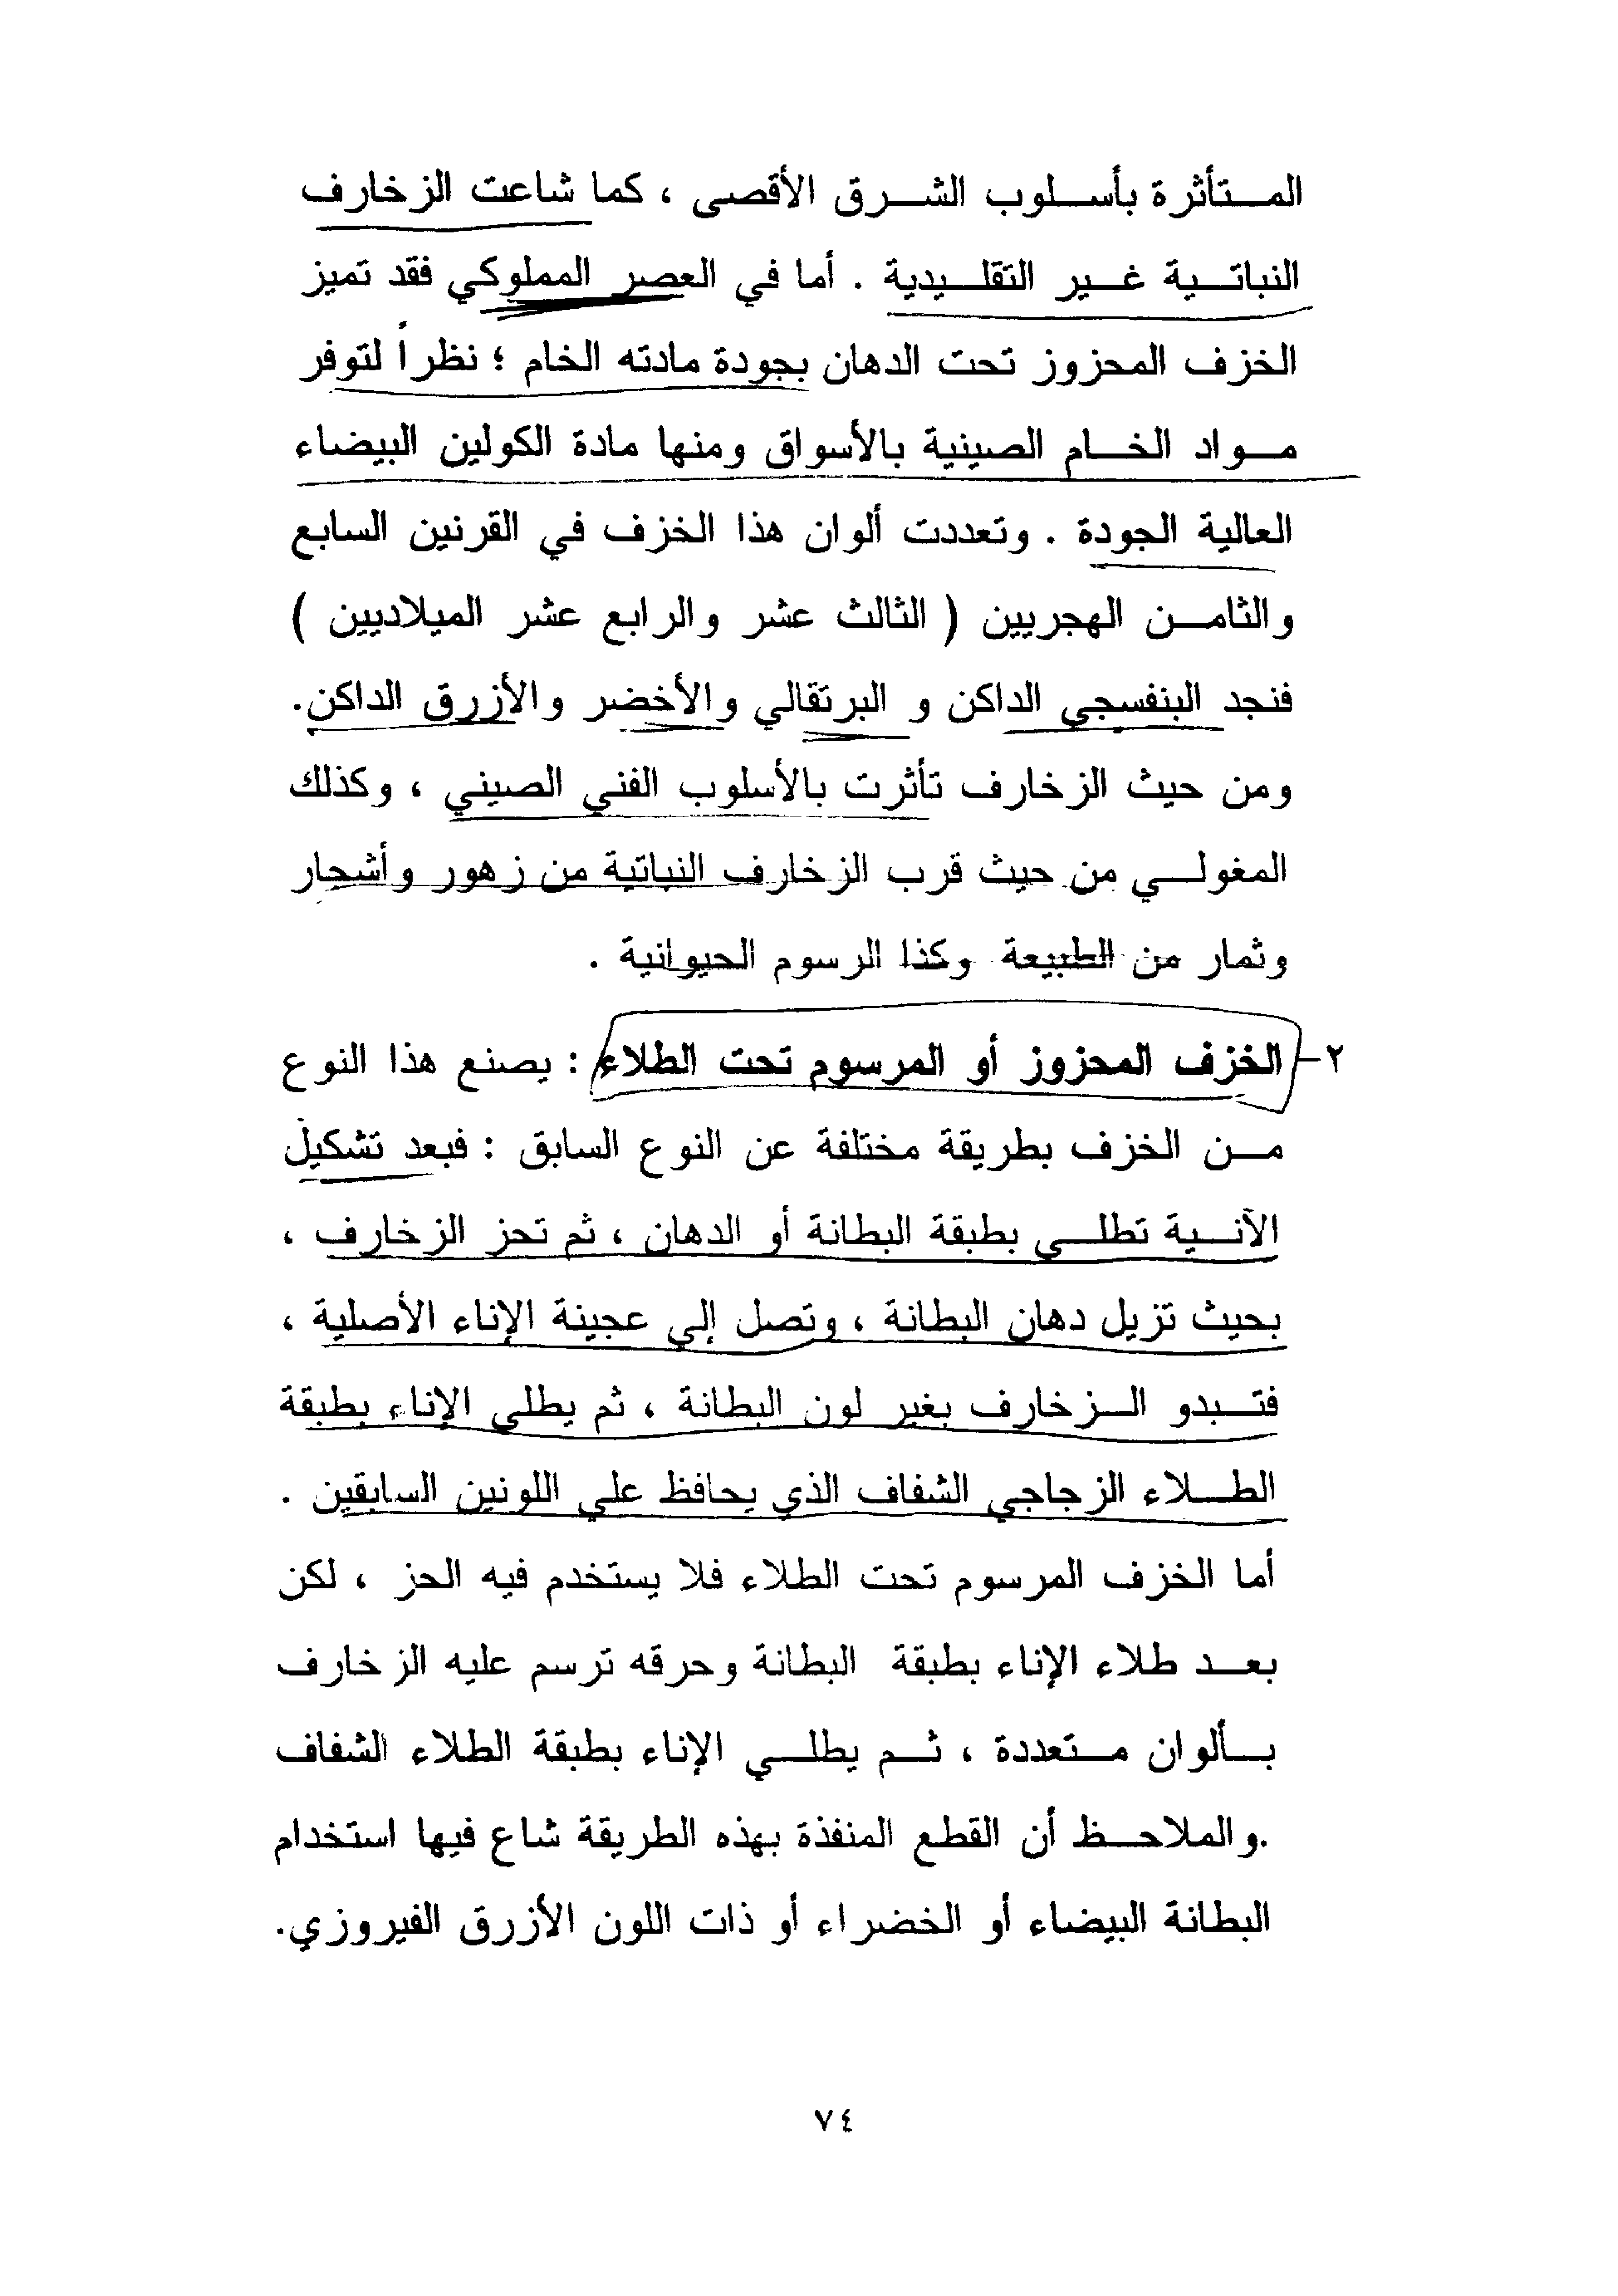 المتأثرة بأسلوب الشرق الأقصى ، كما شاعت الزخارف
النباتية غير التقليدية . أما في العصر المملوكي فقد تميز
الخزف المحزوز تحت الدهان بجودة مادته الخام ؛ نظراً لتوفر
مواد الخام الصينية بالأسواق ومنها مادة الكولين البيضاء
العالية الجودة . وتعددت ألوان هذا الخزف في القرنين السابع
والثامن الهجريين ( الثالث عشر والرابع عشر الميلاديين )
فنجد البنفسجي الداكن و البرتقالي والأخضر والأزرق الداكن.
ومن حيث الزخارف تأثرت بالأسلوب الفني الصيني ، وكذلك
المغولي من حيث قرب الزخارف النباتية من زهور وأشجار
وثمار من الطبيعة وكذا الرسوم الحيوانية .
٢- الخزف المحزوز أو المرسوم تحت الطلاء : يصنع هذا النوع
من الخزف بطريقة مختلفة عن النوع السابق : فبعد تشكيل
الآنية تطلي بطبقة البطانة أو الدهان ، ثم تحز الزخارف ،
بحيث تزيل دهان البطانة ، وتصل إلي عجينة الإناء الأصلية ،
فتبدو الزخارف بغير لون البطانة ، ثم يطلي الإناء بطبقة
الطلاء الزجاجي الشفاف الذي يحافظ علي اللونين السابقين .
أما الخزف المرسوم تحت الطلاء فلا يستخدم فيه الحز ، لكن
بعد طلاء الإناء بطبقة البطانة وحرقه ترسم عليه الزخارف
بألوان متعددة ، ثم يطلي الإناء بطبقة الطلاء الشفاف
.والملاحظ أن القطع المنفذة بهذه الطريقة شاع فيها استخدام
البطانة البيضاء أو الخضراء أو ذات اللون الأزرق الفيروزي.
٧٤